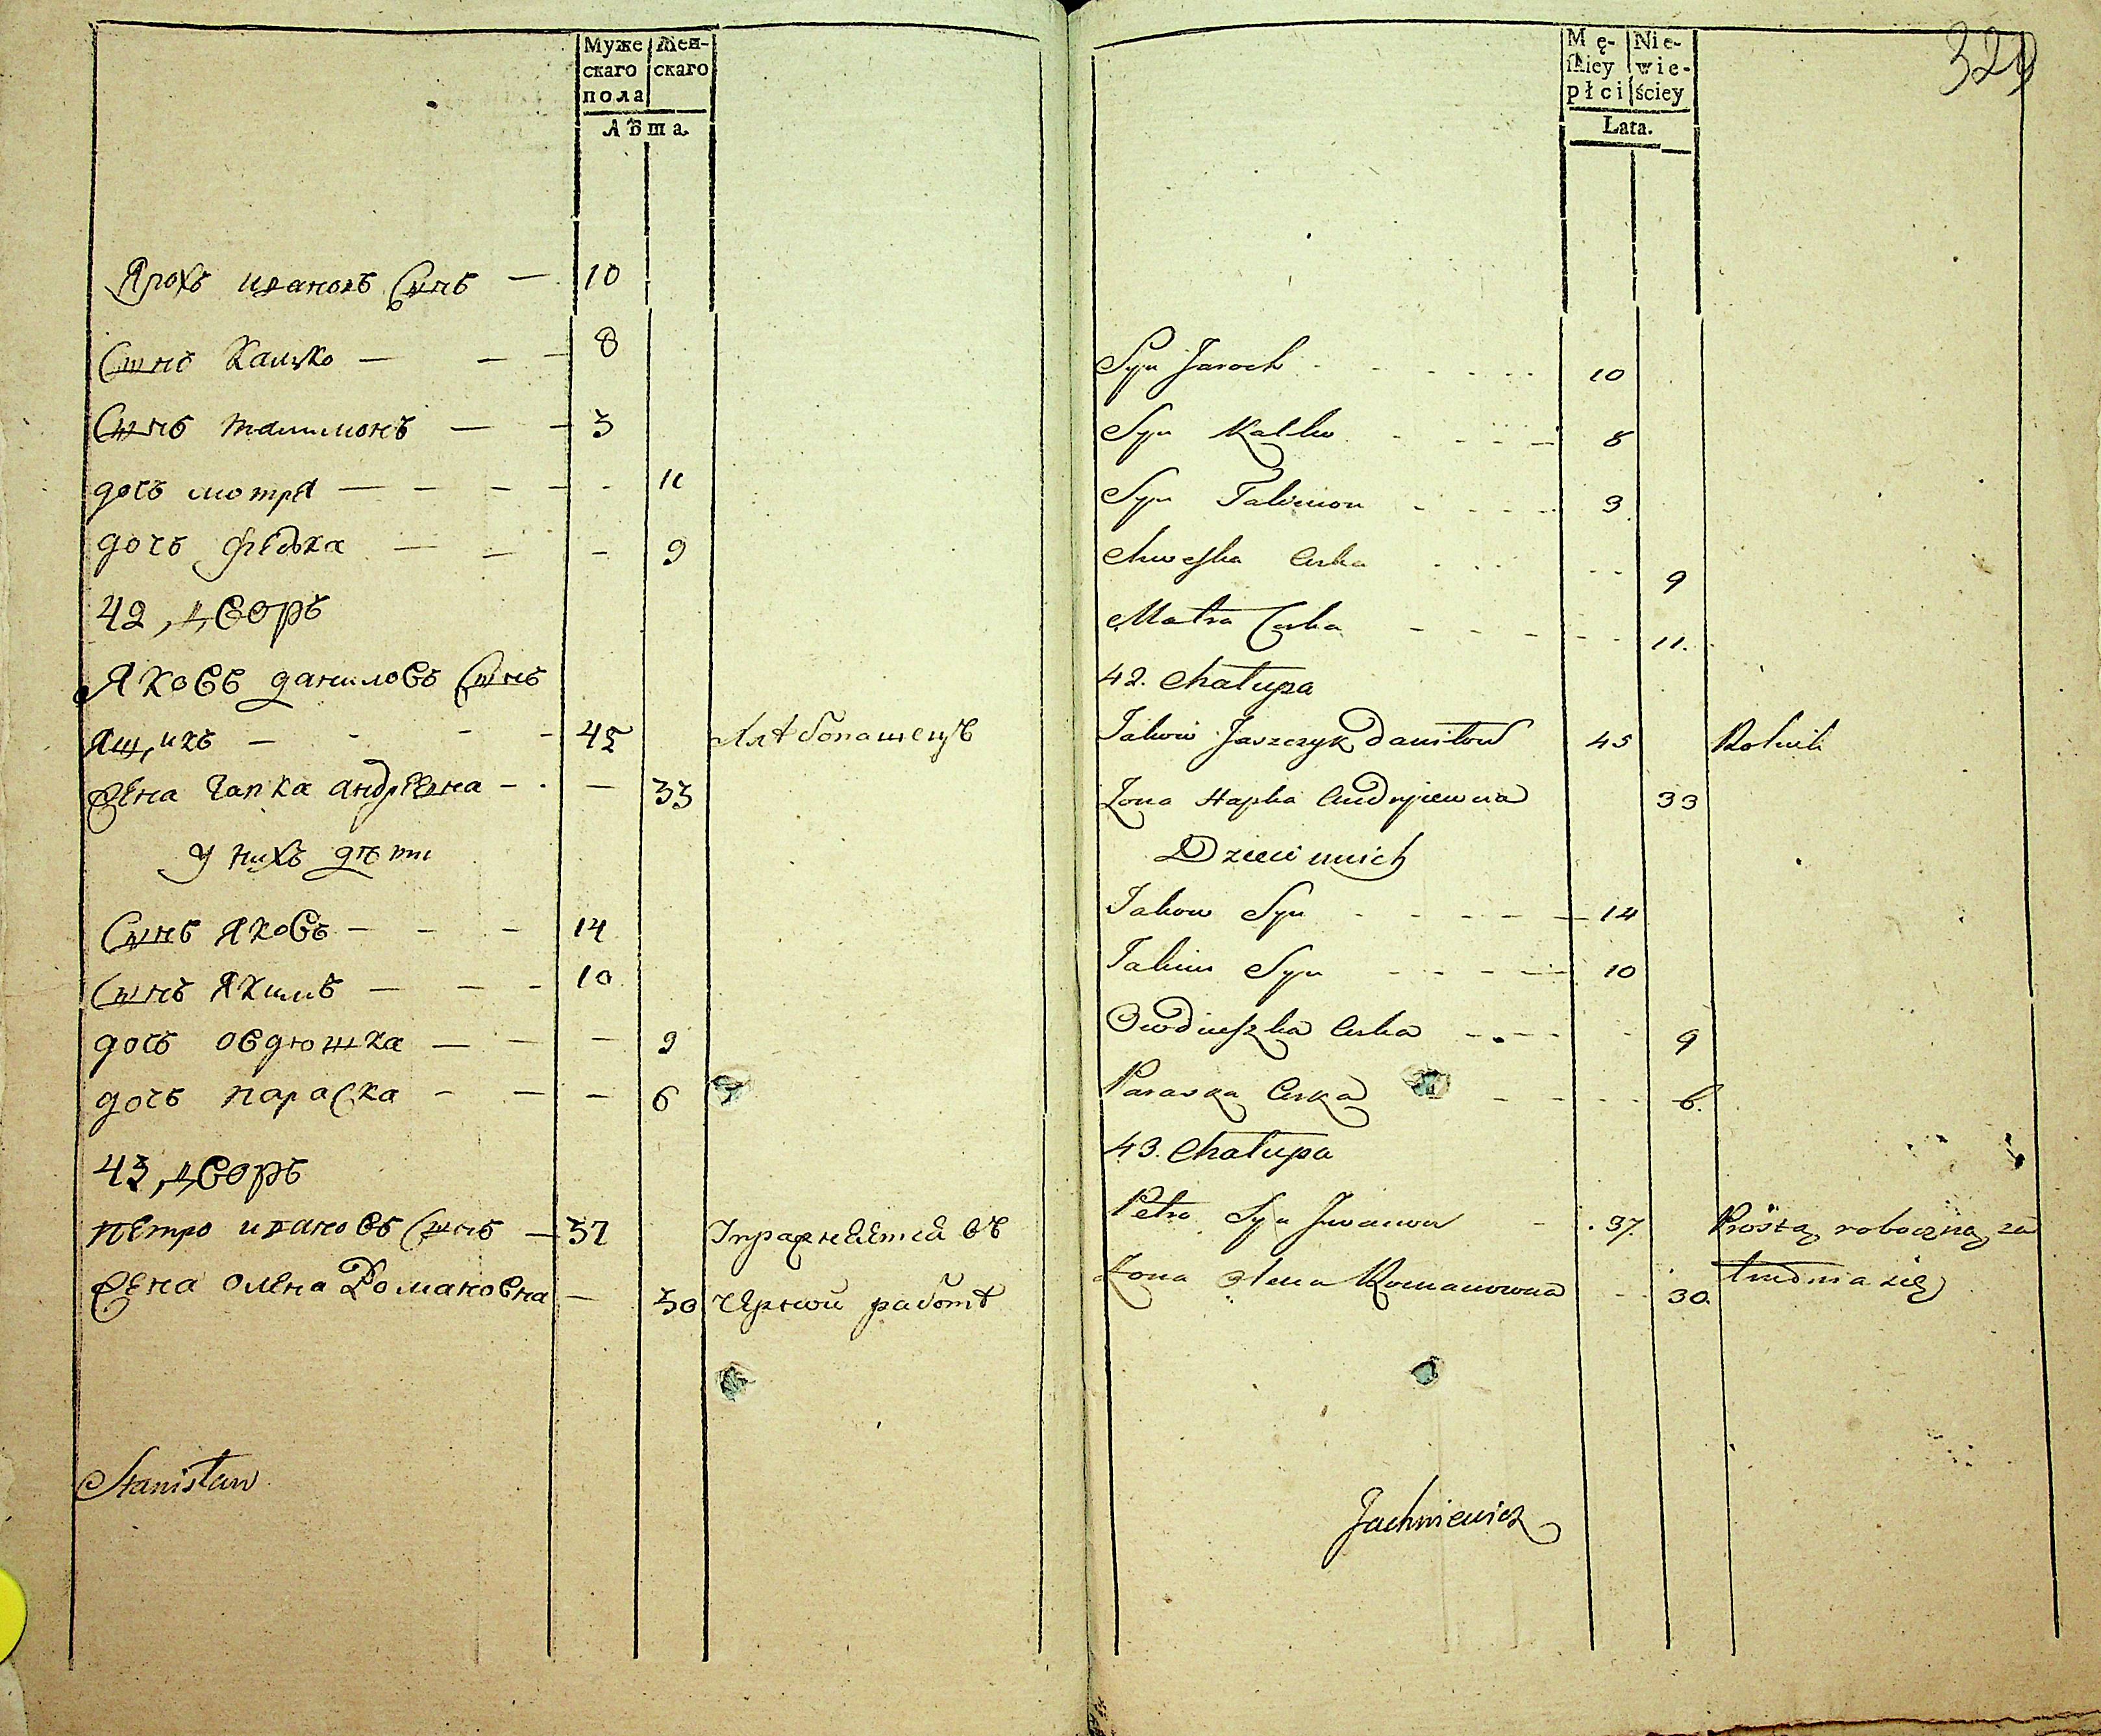 Муже
скаго
пола
Жен-
скаго
Лѣта.
Ярохъ ивановъ Сынъ — 10
Сынъ Калико — — — 8
Сынъ талимонъ — — 3
дочь мотря — — — — - 11
дочь федька — — - 9
42, дворъ
Яковъ даниловъ Сынъ
Ящикъ — - - - 45 хлѣбопашецъ
Жена гапка андрѣевна - - — 33
у нихъ дѣти
Сынъ Яковъ — - - 14
Сынъ Якимъ — - - 10
дочь овдюшка — - — 9
дочь параска - — - 6
43, дворъ
петро ивановъ Сынъ — 37 Упражняется въ
Жена олена Романовна — 30 черной работѣ
Stanisław
Mę-
skiey
płci
Nie-
wie-
ściey
Lata.
329
Syn Jaroch - - - - - - 10
Syn Kalko - - - - 8
Syn Talimon - - - - 3.
Corka - - - - - 9
Motra Corka - - - - - 11.
42. Chałupa
Jakow Jaszczyk Daniłow 45 Rolnik
Żona Hapka Andryiewna 33
Dzieci unich
Jakow Syn - - - - - 14
Jakim Syn - - - - 10
Owdiuszka Corka - - - - - 9
Paraska Corka - - - - - 6.
43. Chałupa
Petro Syn Jwanow - . 37. Prostą roboczną za
Żona Olena Romanowna - - 30. trudnia się
Jachniewicz